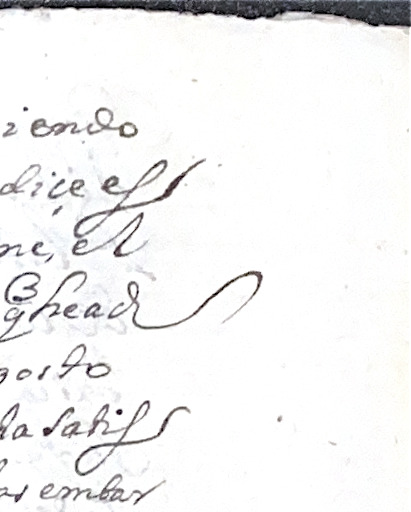 iendo
diçe es
ne, el
q head
gosto
la satis
as embar